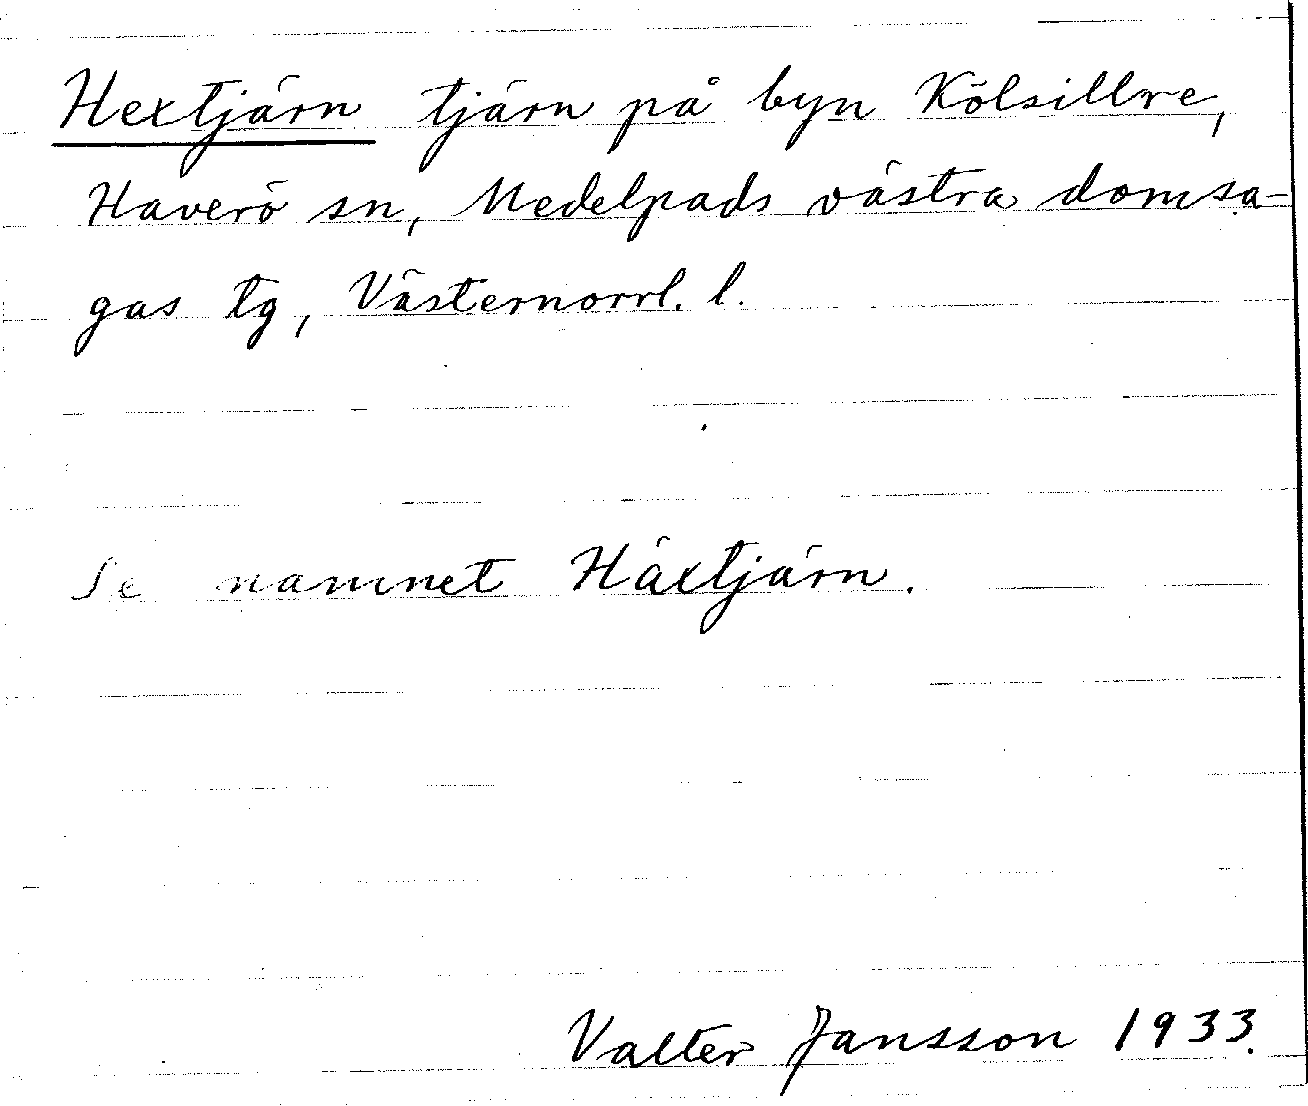 Hextjärn tjärn på byn Kölsillre,
Haverö sn, Medelpads västra domsa-
gas tg, Västernorrl. l.
Se namnet Häxtjärn.
Valter Jansson 1933.